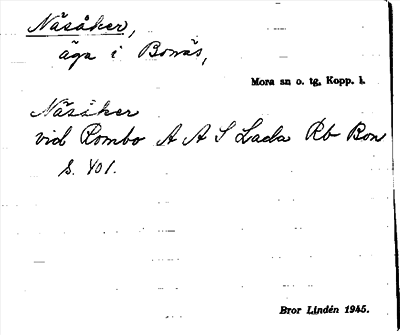 Näsåker,
äga i Bonäs,
Mora sn o. tg, Kopp. l.
Näsåker
vid Rombo A A S Lada Rb Bon
s. 401.
Bror Lindén 1945.